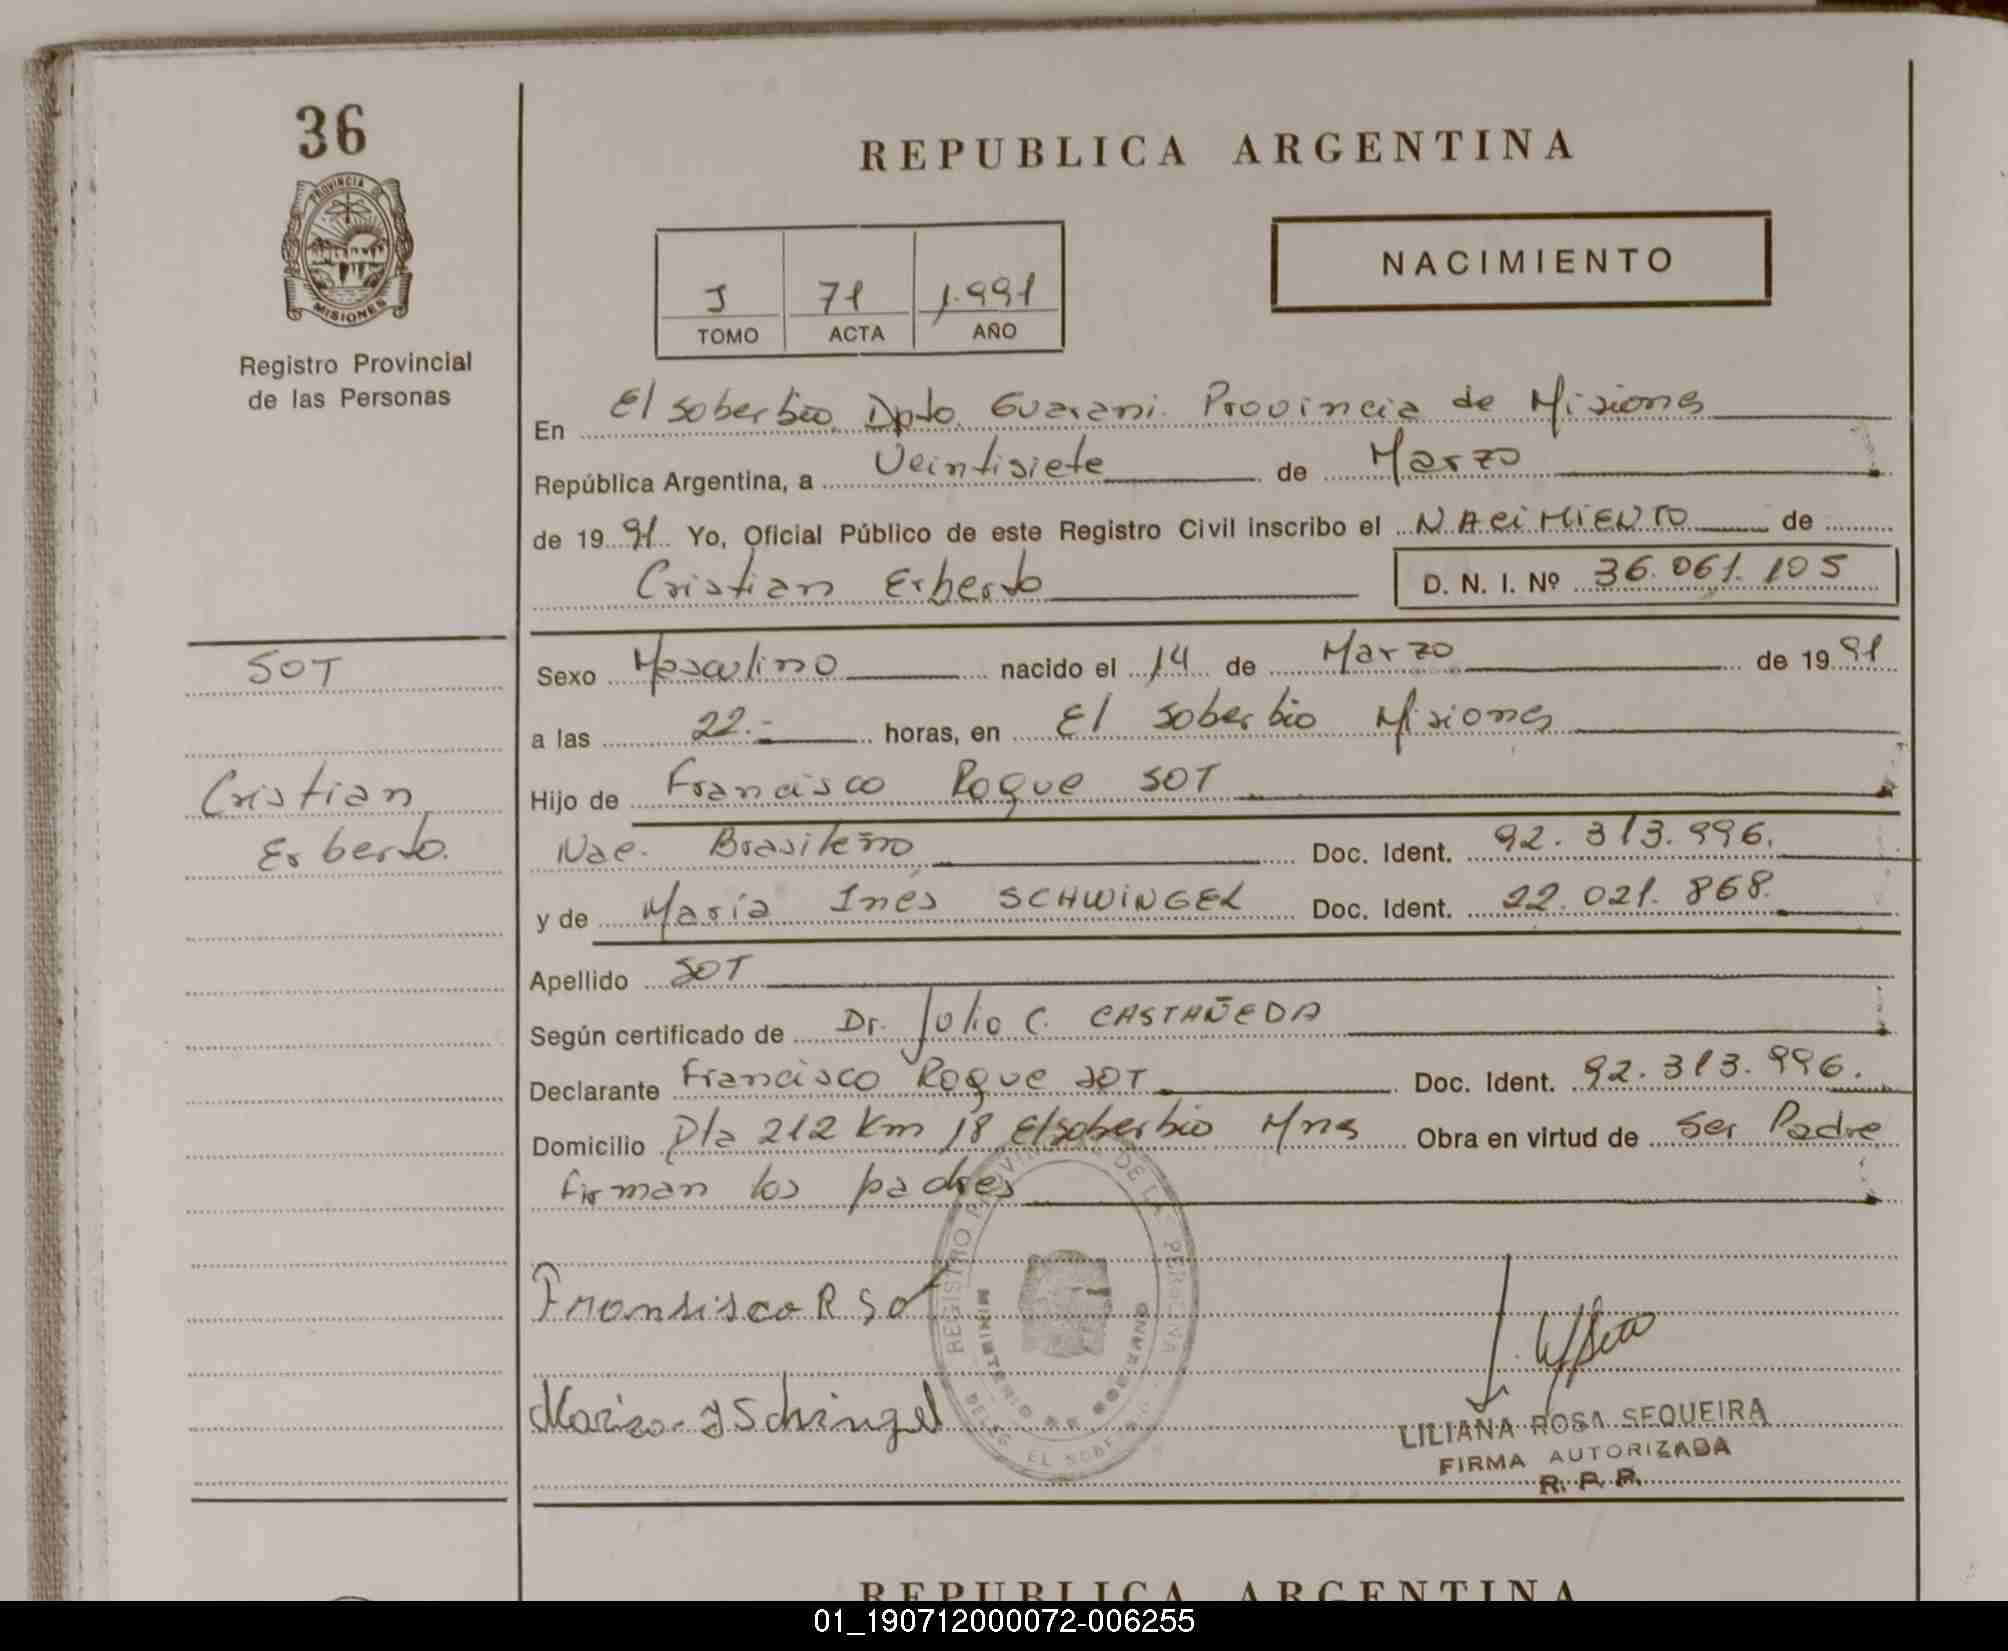 36
PROVINCIA DE
MISIONES
Registro Provincial
de las Personas
REPUBLICA ARGENTINA
NACIMIENTO
J 71 1.991
TOMO ACTA AÑO
En El Soberbio Dpto. Guarani. Provincia de Misiones
República Argentina, a Veintisiete de Marzo
de 1991 Yo, Oficial Público de este Registro Civil inscribo el NACIMIENTO de
Cristian Erberto D. N. I. Nº 36.061.105
SOT
Cristian
Erberto.
Sexo Masculino nacido el 14 de Marzo de 1991
a las 22.- horas, en El Soberbio Misiones
Hijo de Francisco Roque SOT
Nac. Brasileño Doc. Ident. 92.313.996.
y de María Inés SCHWINGEL Doc. Ident. 22.021.868.
Apellido SOT
Según certificado de Dr. Julio C. CASTAÑEDA
Declarante Francisco Roque SOT Doc. Ident. 92.313.996.
Domicilio Pla 212 Km 18 El Soberbio Mns Obra en virtud de Ser Padre
Firman los padres
REGISTRO PROVINCIAL DE LAS PERSONAS
MINISTERIO DE GOBIERNO
Fransisco R Sot
Maria J Schingel
LILIANA ROSA SEQUEIRA
FIRMA AUTORIZADA
R. P. P.
REPUBLICA ARGENTINA
01_190712000072-006255